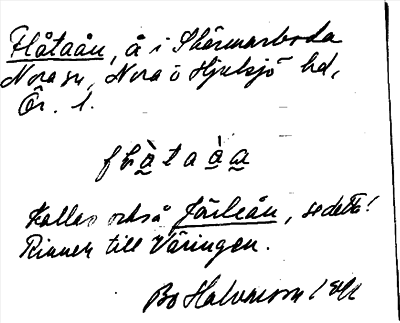 Flåtaån, å i Skärmarboda
Nora sn, Nora o Hjulsjö hd,
Ör. l.
flåtaåa
Kallas också Järleån, se detta!
Rinner till Väringen.
Bo Halvarson